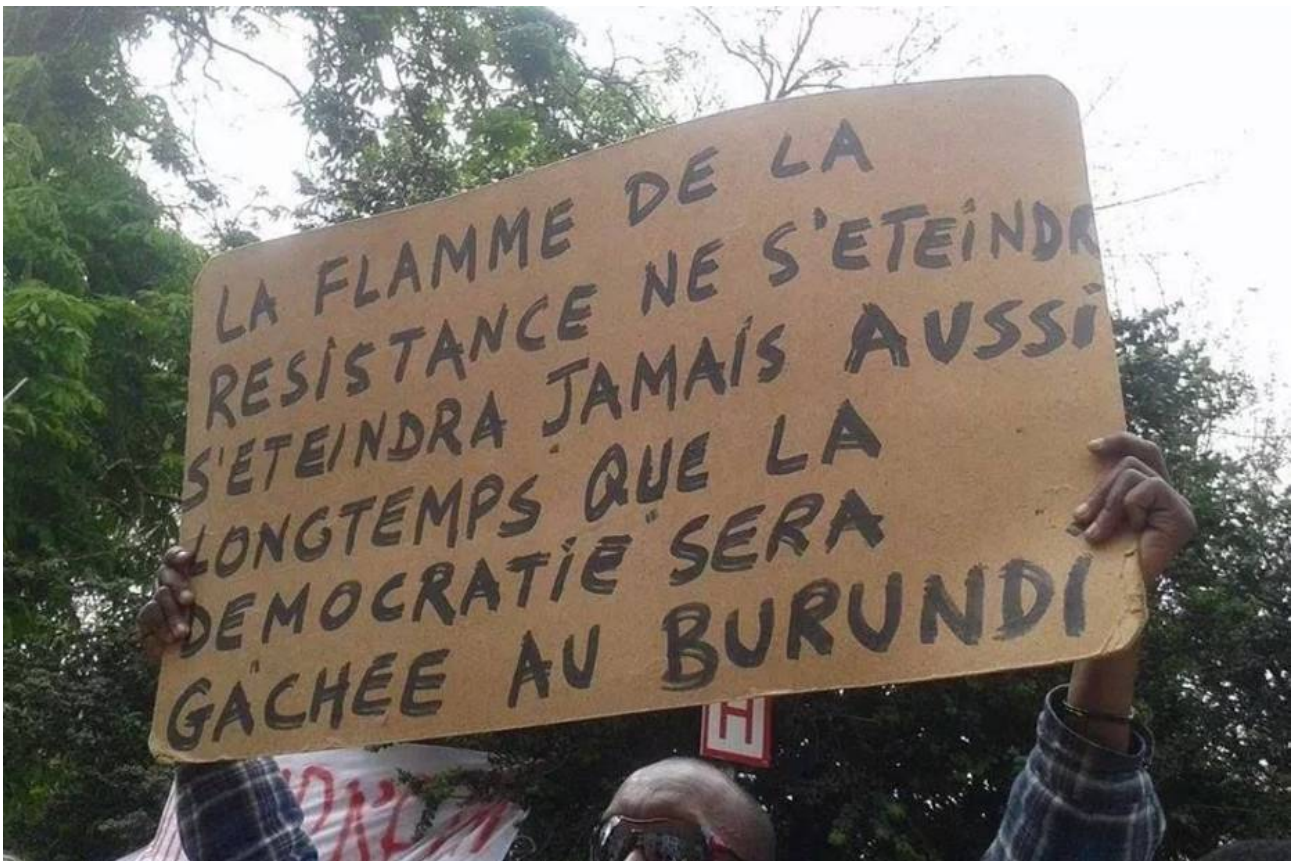 LA FLAMME DE LA
RESISTANCE NE S'ETEINDR
S'ETEINDRA JAMAIS AUSSI
LONGTEMPS QUE LA
DEMOCRATIE SERA
GACHEE AU BURUNDI
H